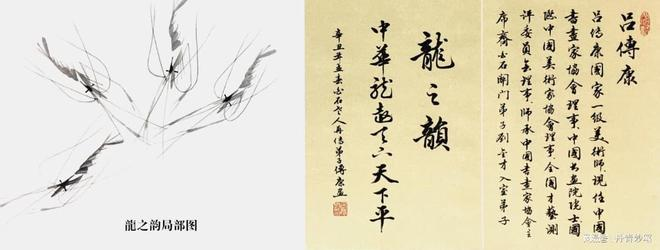 龍之韵局部图
龍之韻
中華龍天下平
辛丑年孟春白石老人再傳弟子傳康畫
呂傳康
呂傳康國家一級美術師現任中國
書畫家協會理事中國书画院院士國
际中國美術家協會理事全國才藝測
評委員會理事師承中國書畫家協會主
席齊白石關門弟子劉金才入室弟子